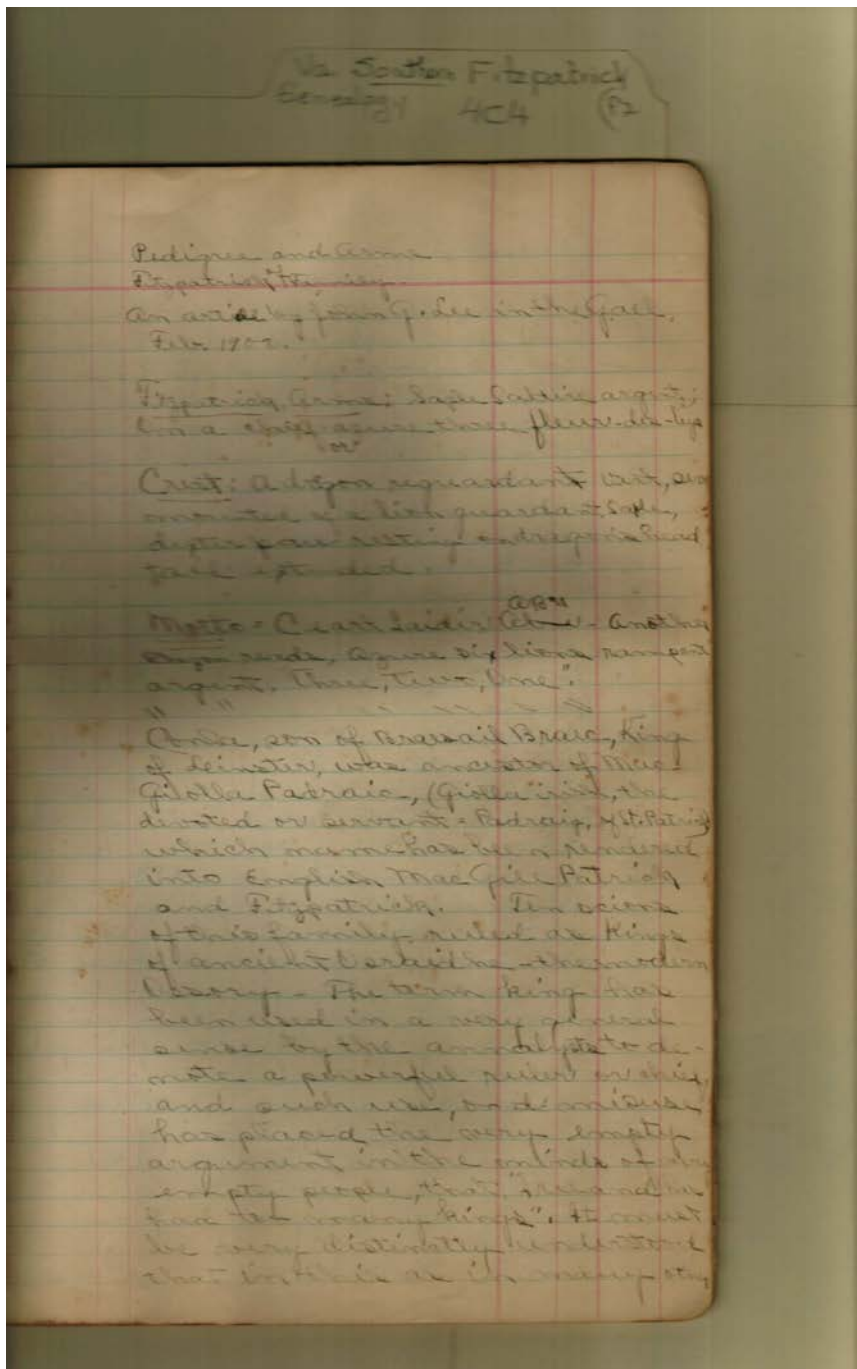 Va. Southern Fitzpatrick
Genealogy 4C4 (P2
Pedigree and Arms
Fitzpatrick Family.
An article by John G. Lee in the Gael,
Feb. 190
Fitzpatrick, Arms; Sable Saltire argent;
On a chief azure three fleur-de-lys
or
Crest: A dragon reguardant vert,
a lion guardant, Sable,
dexter paw resting on dragon's head
tail extended.
ABU
Motto = Cear Laidir Abu - Another
reads, Azure six lions rampant
argent. Three, Two, One".
" " " " " "
Conla, son of Breasail Breac, King
of Leinster, was ancestor of Mac-
Giolla Padraic, (Giolla Irish, the
devoted or servant = Padraig, of St. Patrick)
which name has been rendered
into English Mac Gill Patrick
and Fitzpatrick. Ten scions
of this family, ruled as Kings
of ancient the modern
Ossory - The term king has
been used in a very general
sense by the annalysts to de-
note a powerful ruler or chief,
and such use, and misuse
has placed the very empty
argument in the minds of
empty people, that, "Ireland
had too many kings". It must
be very distinctly understood
that in this as in many